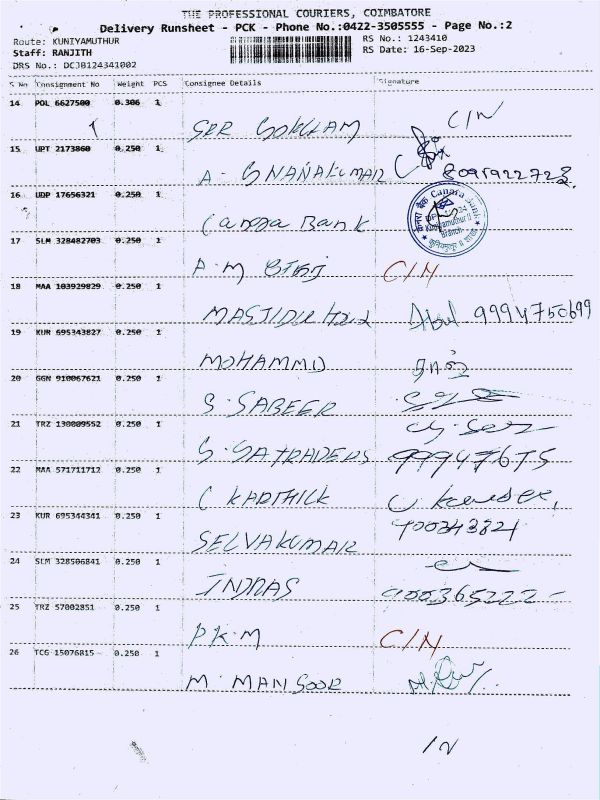 THE PROFESSIONAL COURIERS, COIMBATORE
Delivery Runsheet - PCK - Phone No.:0422-3505555 - Page No.:2
Route: KUNIYAMUTHUR RS No.: 1243410
Staff: RANJITH RS Date: 16-Sep-2023
DRS No.: DCJB124341002
S No Consignment No Weight PCS Consignee Details Signature
14 POL 6627500 0.306 1
C/N
15 UPT 2173860 0.250 1
A. GNANAKUMAR
16 UDP 17656321 0.250 1
Canara Bank
17 SLM 328482703 0.250 1
P.M C/N
18 MAA 103929829 0.250 1
MASJIDUL Abul 9994750699
19 KUR 695343827 0.250 1
MOHAMMD
20 GGN 910067621 0.250 1
S. SABEER
21 TRZ 130009552 0.250 1
S. SA TRADERS 99947675
22 MAA 571711712 0.250 1
C KARTHICK
23 KUR 695344341 0.250 1
SELVAKUMAR
24 SLM 328506841 0.250 1
INDRAS
25 TRZ 57002851 0.250 1
P.K.M C/N
26 TCG 15076815 0.250 1
M. MANSOOR